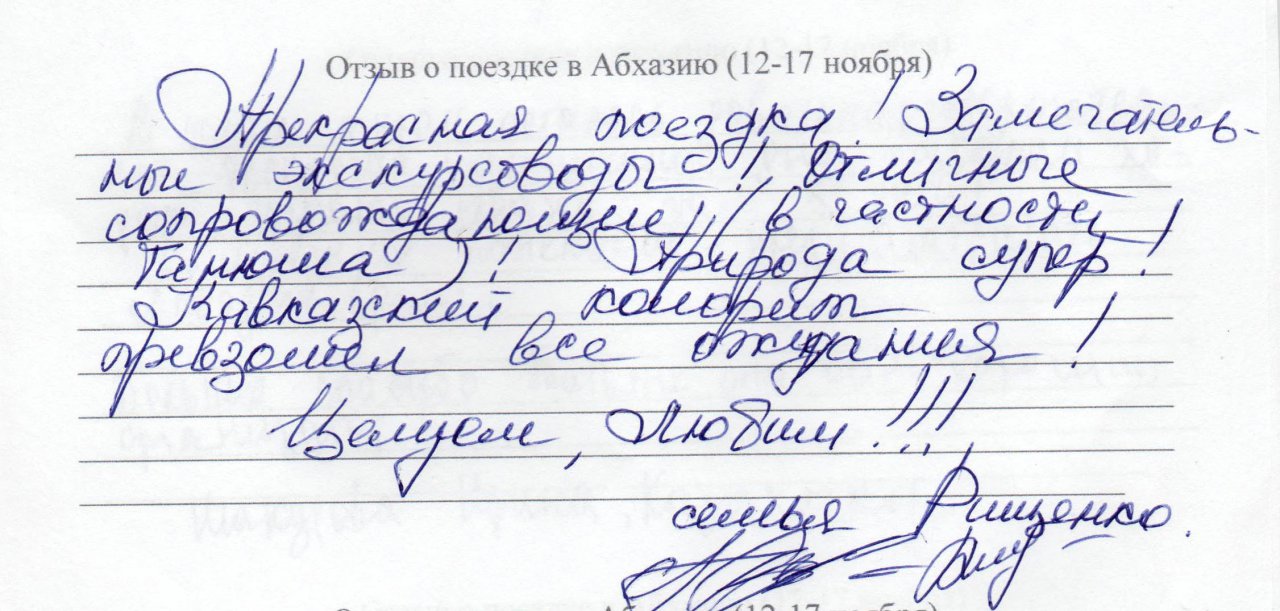 Отзыв о поездке в Абхазию (12-17 ноября)
Прекрасная поездка! Замечатель-
ные экскурсоводы! Отличные
сопровождающие! (в частности
Танюша)! Природа супер!
Кавказский колорит
превзошел все ожидания!
Целуем, Любим!!!
семья Рищенко.